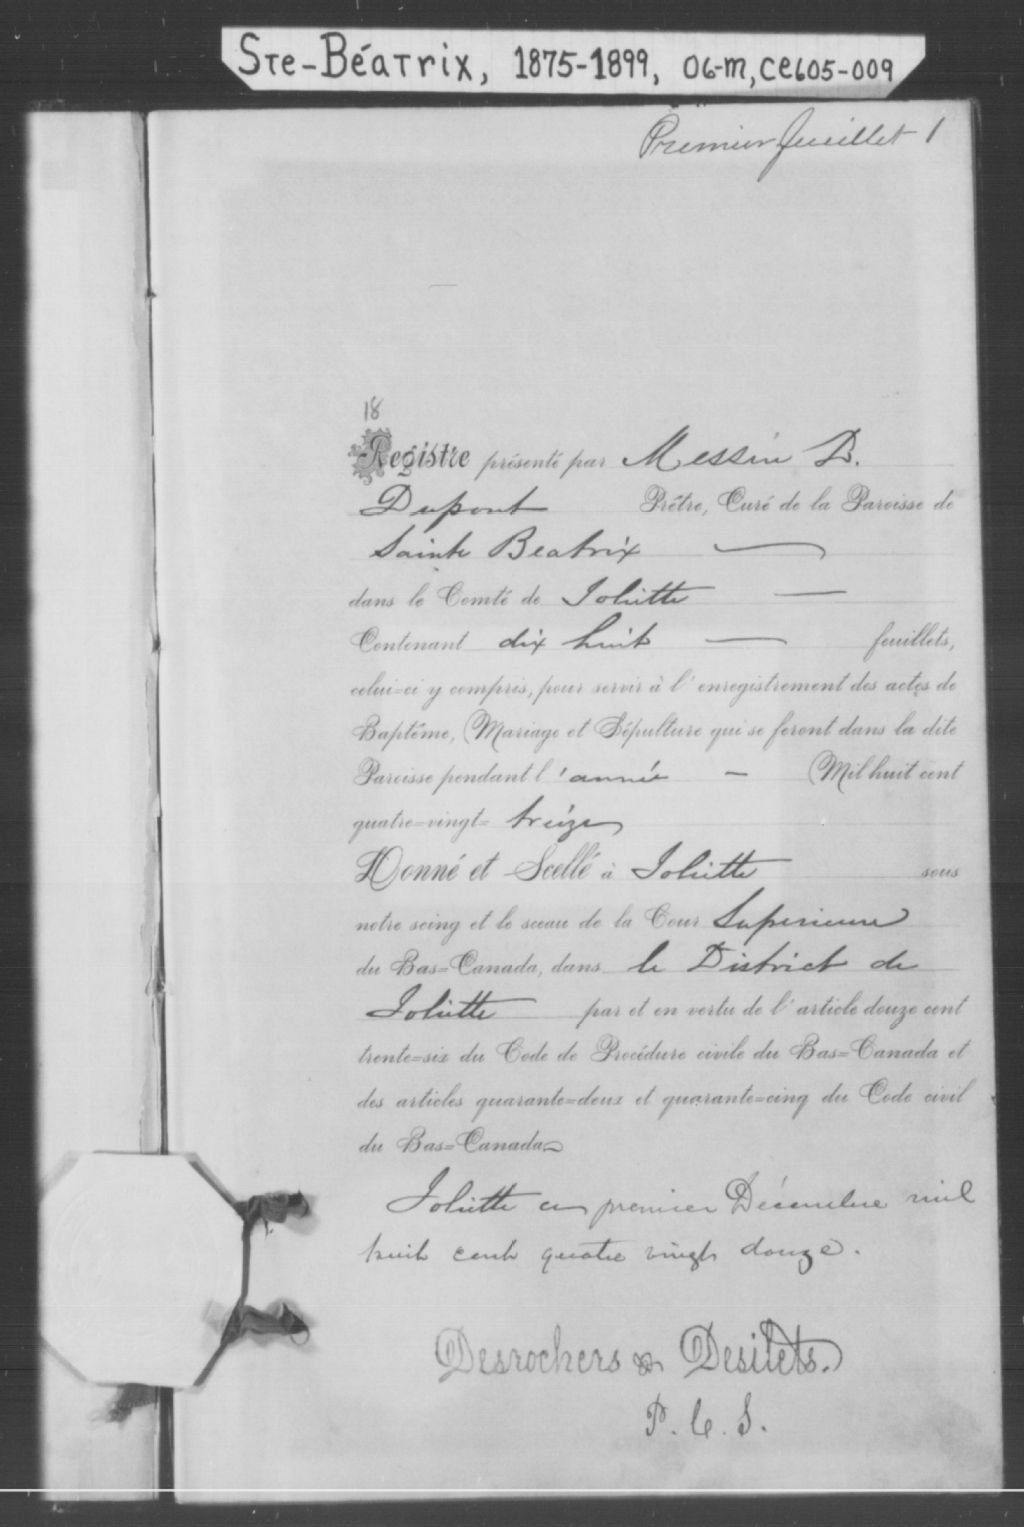 Ste-Béatrix, 1875-1899, 06-M, CE605-009
Premier feuillet 1
18
Registre présenté par Messire D.
Dupont Prêtre, Curé de la Paroisse de
Sainte Beatrix
dans le Comté de Joliette
Contenant dix huit feuillets,
celui-ci y compris, pour servir à l'enregistrement des actes de
Baptême, Mariage et Sépulture qui se feront dans la dite
Paroisse pendant l'année - Mil huit cent
quatre-vingt- treize
Donné et Scellé à Joliette sous
notre seing et le sceau de la Cour Superieure
du Bas-Canada, dans le District de
Joliette par et en vertu de l'article douze cent
trente-six du Code de Procédure civile du Bas-Canada et
des articles quarante-deux et quarante-cinq du Code civil
du Bas-Canada
Joliette ce premier Décembre mil
huit cent quatre vingt douze.
Desrochers & Desilets.
P. C. S.